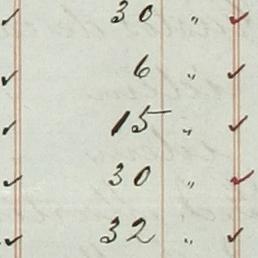 ✓ 30 " ✓
✓ 6 " ✓
✓ 15 " ✓
✓ 30 " ✓
✓ 32 " ✓